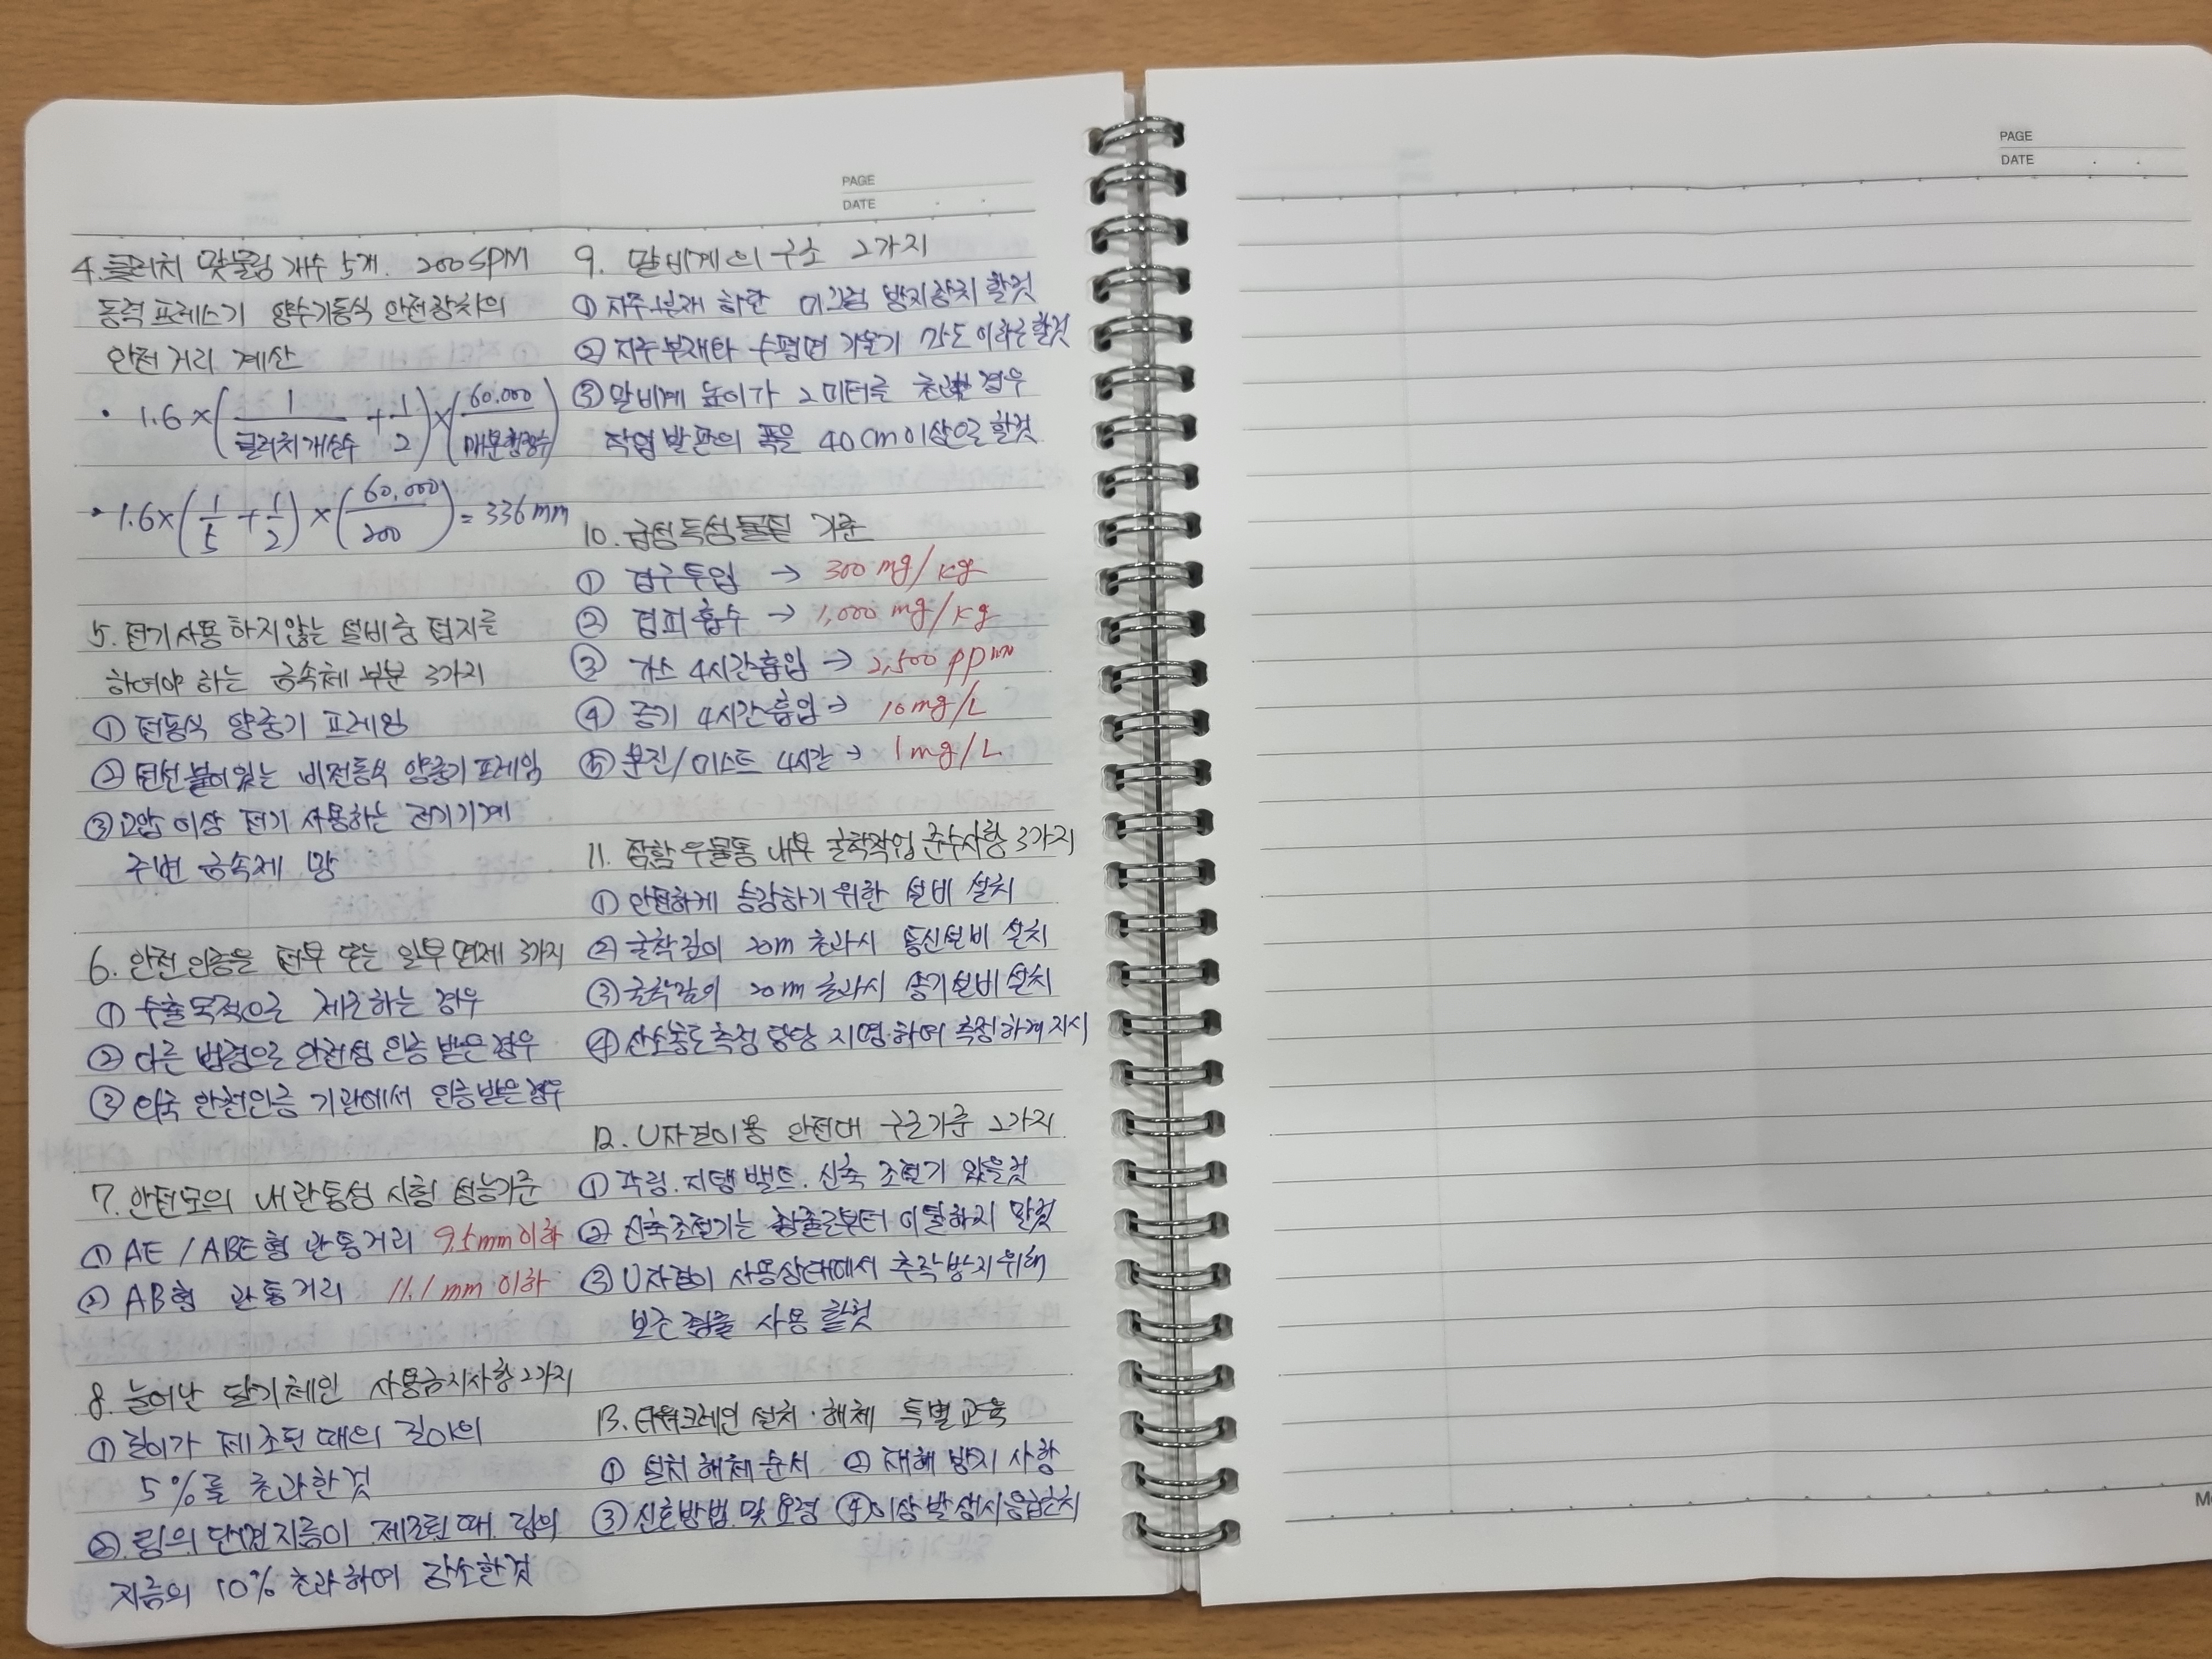 PAGE
DATE
4. 클러치 맞물림 개수 5개. 200SPM
동력 프레스기 양수기동식 안전장치의
안전거리 계산
· 1.6×(1/클러치개소수 + 1/2)×(60.000/매분행정수)
· 1.6×(1/5 + 1/2)×(60.000/200) = 336mm
5. 전기사용 하지않는 설비중 접지를
하여야 하는 금속체 부분 3가지
① 전동식 양중기 프레임
② 전선 붙어있는 비전동식 양중기 프레임
③ 고압 이상 전기 사용하는 전기기계
주변 금속제 망
6. 안전인증을 전부 또는 일부 면제 3가지
① 수출목적으로 제조하는 경우
② 다른 법령으로 안전성 인증 받은 경우
③ 외국 안전인증 기관에서 인증받은 경우
7. 안전모의 내관통성 시험 성능기준
① AE / ABE형 관통거리 9.5mm이하
② AB형 관통거리 11.1mm 이하
8. 늘어난 달기체인 사용금지사항 2가지
① 길이가 제조된 때의 길이의
5%를 초과한것
②. 링의 단면지름이 제조된 때. 링의
지름의 10% 초과하여 감소한것
9. 말비계의 구조 2가지
① 지주부재 하단 미끄럼 방지장치 할것
② 지주부재와 수평면 기울기 75도 이하로 할것
③ 말비계 높이가 2미터를 초과할 경우
작업발판의 폭을 40cm이상으로 할것
10. 급성독성물질 기준
① 경구투입 → 300 mg/kg
② 경피흡수 → 1,000 mg/kg
③ 가스 4시간흡입 → 2,500 ppm
④ 증기 4시간흡입 → 10mg/L
⑤ 분진/미스트 4시간 → 1mg/L
11. 잠함 우물통 내부 굴착작업 준수사항 3가지
① 안전하게 승강하기 위한 설비 설치
② 굴착깊이 20m 초과시 통신설비 설치
③ 굴착깊이 20m 초과시 송기설비 설치
④ 산소농도측정 담당 지명.하여 측정하게 지시
12. U자걸이용 안전대 구조기준 2가지
① 각링. 지탱벨트. 신축 조절기 있을것
② 신축조절기는 죔줄로부터 이탈하지 말것
③ U자걸이 사용상태에서 추락방지위해
보조죔줄 사용 할것
13. 타워크레인 설치·해체 특별교육
① 설치 해체 순서 ② 재해 방지 사항
③ 신호방법 및 요령 ④ 이상발생시 응급조치
PAGE
DATE